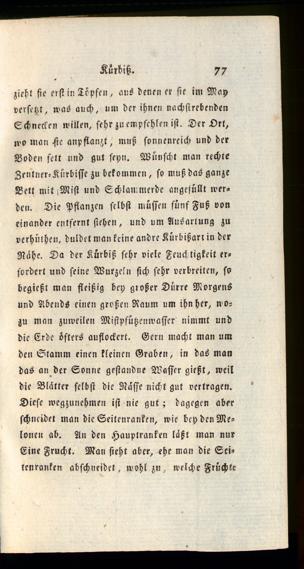 Kürbiß. 77
zieht sie erst in Töpfen, aus denen er sie im May
versetzt, was auch, um der ihnen nachstrebenden
Schnecken willen, sehr zu empfehlen ist. Der Ort,
wo man sie anpflanzt, muß sonnenreich und der
Boden fett und gut seyn. Wünscht man rechte
Zentner-Kürbisse zu bekommen, so muß das ganze
Bett mit Mist und Schlammerde angefüllt wer-
den. Die Pflanzen selbst müssen fünf Fuß von
einander entfernt stehen, und um Ausartung zu
verhüthen, duldet man keine andre Kürbißart in der
Nähe. Da der Kürbiß sehr viele Feuchtigkeit er-
fordert und seine Wurzeln sich sehr verbreiten, so
begießt man fleißig bey großer Dürre Morgens
und Abends einen großen Raum um ihn her, wo-
zu man zuweilen Mistpfützenwasser nimmt und
die Erde öfters auflockert. Gern macht man um
den Stamm einen kleinen Graben, in das man
das an der Sonne gestandne Wasser gießt, weil
die Blätter selbst die Nässe nicht gut vertragen.
Diese wegzunehmen ist nie gut; dagegen aber
schneidet man die Seitenranken, wie bey den Me-
lonen ab. An den Hauptranken läßt man nur
Eine Frucht. Man sieht aber, ehe man die Sei-
tenranken abschneidet, wohl zu, welche Früchte